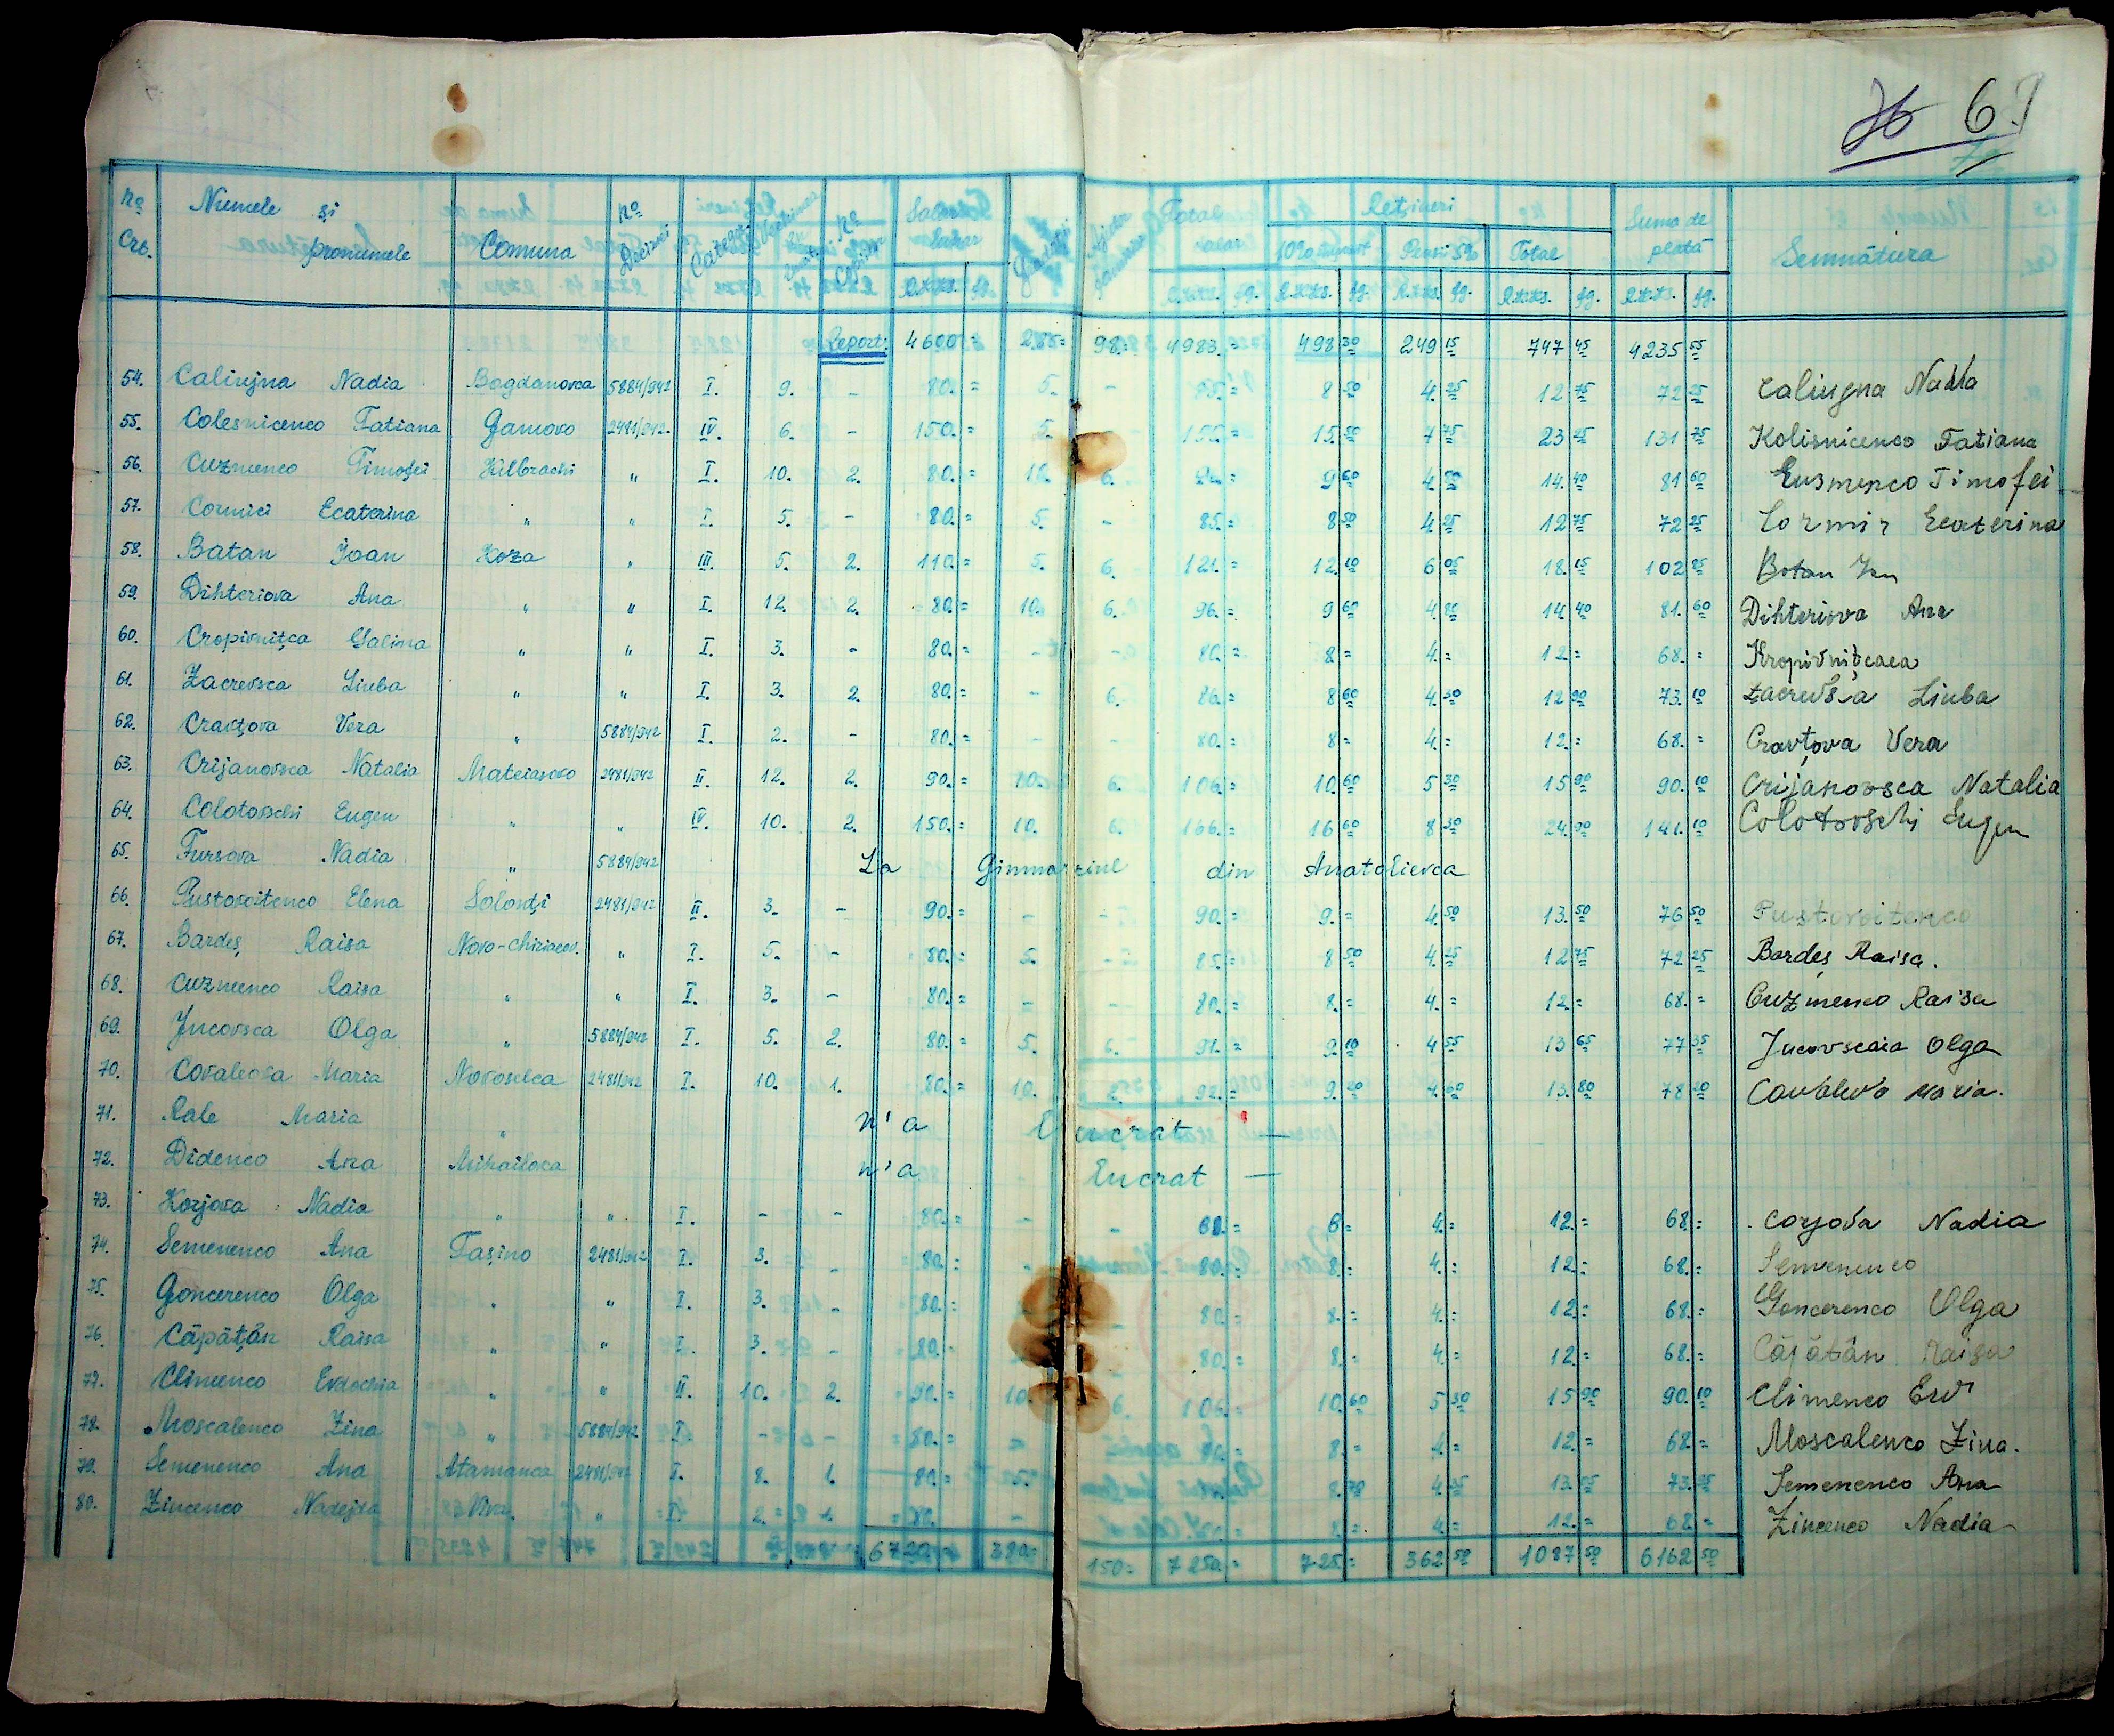 6
Nº Crt.  Numele și pronumele  Comuna  Nº Deciziei  Categ.  Nº Copiilor  Salar  Gradații  Total salar  Rețineri  Suma de plată  Semnătura
Pensi 5%  Total
R.K.K.S.  fg.  R.K.K.S.  fg.  R.K.K.S.  fg.  R.K.K.S.  fg.  R.K.K.S.  fg.  R.K.K.S.  fg.
Report:  4600=  288=  98.=  4983.=  498 30  249 15  747 45  4235 55
54.  Nadia  Bogdanovca  5884/942  I.  9.  -  80.=  5.  -  85.=  8 50  4. 25  12 75  72 25  Nadia
55.  Colesnicenco Tatiana  Gamovo  2481/942  IV.  6.  -  150.=  5.  -  155.=  15. 50  7 75  23 25  131 75  Kolisnicenco Tatiana
56.  Cuzmenco Timofei  "  I  10.  2.  80.=  6.  9 60  4. 80  14. 40  81 60  Timofei
57.  Cornici Ecaterina  "  "  I.  5.  -  80.=  5.  -  85.=  8 50  4. 25  12 75  72 25  Ecaterina
58.  Batan Ioan  Koza  "  III.  5.  2.  110.=  5.  6.  121.=  12. 10  6 05  18. 15  102 85  Botan
59.  Dihteriova Ana  "  "  I.  12.  2.  80=  10.  6.  96.=  9 60  4. 80  14. 40  81. 60  Dihteriova Ana
60.  Cropivnițca Galina  "  "  I.  3.  -  80.=  -  -  80.=  8.=  4.=  12.=  68.=  Kropivnițcaea
61.  Zacrevsca Liuba  "  "  I.  3.  2.  80.=  -  6.  86.=  8 60  4. 30  12 90  73. 10  Liuba
62.  Cravțova Vera  "  5884/942  I.  2.  -  80.=  -  -  80.=  8=  4.=  12.=  68.=  Cravțova Vera
63.  Crijanovsca Natalia  Mateiasovo  2481/942  II.  12.  2.  90.=  10.  6.  106.=  10. 60  5 30  15 90  90. 10  Crijanovsca Natalia
64.  Colotovschi Eugen  "  "  IV.  10.  2.  150.=  10.  6.  166.=  16 60  8 30  24. 90  141. 10  Eugen
65.  Fursova Nadia  "  5884/942  La Gimnaziul din Anatolievca
66.  Pustovoitenco Elena  2481/942  II.  3.  -  90.=  -  -  90.=  9.=  4. 50  13. 50  76 50  Pustovoitenco
67.  Bardeș Raisa  Novo-Chiriacov.  "  I.  5.  -  80.=  5.  -  85.=  8 50  4. 25  12 75  72 25  Bardeș Raisa.
68.  Cuzmenco Raisa  "  "  I.  3.  -  80.=  -  -  80.=  8.=  4.=  12.=  68.=  Cuzmenco Raisa
69.  Jucovsca Olga  "  5884/942  I.  5.  2.  80.=  5.  6.  91.=  9. 10  4 55  13 65  77 35  Jucovscaia Olga
70.  Covaleova Maria  Novoselca  2481/942  I.  10.  1.  80.=  10.  2.  92.=  9. 20  4. 60  13. 80  78 20  Maria.
71.  Rale Maria  "  n'a lucrat —
72.  Didenco Ana  Mihailova  n'a lucrat —
73.  Korjova Nadia  "  "  I.  -  -  80.=  -  -  8=  4.=  12.=  68.=  Corjova Nadia
74.  Semenenco Ana  Tașino  2481/942  I.  3.  -  80.=  -  80.=  8.=  4.=  12.=  68.=  Semenenco
75.  Goncerenco Olga  "  "  I.  3.  -  80.=  -  80.=  8.=  4.=  12.=  68.=  Goncerenco Olga
76.  Căpățân Raisa  "  "  I.  3.  -  80.=  -  80.=  8.=  4.=  12.=  68.=  Căpățân Raisa
77.  Climenco Evdochia  "  "  II.  10.  2.  90.=  10.  6.  106.=  10. 60  5 30  15 90  90. 10  Climenco
78.  Moscalenco Zina  "  5884/942  I.  -  -  80.=  80.=  8.=  4.=  12.=  68.=  Moscalenco Zina.
79.  Semenenco Ana  Atamanca  2481/942  I.  8.  1.  80.=  5.  8. 70  4. 35  13. 05  73. 95  Semenenco Ana
80.  Zincenco Nadejda  "  I.  2.  80.  -  8.=  4.=  12.=  68.=  Zincenco Nadia
6720.=  380=  150=  7250.=  725.=  362 50  1087 50  6162 50